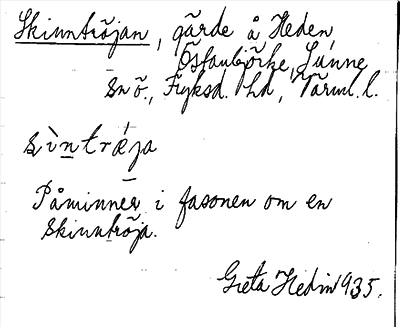 Skinntröjan, gärde å Heden,
Östanbjörke, Sunne
snö., Fryksd. hd, Värml. l.
sìntrǽja
Påminner i fasonen om en
skinntröja.
Greta Hedin 1935.